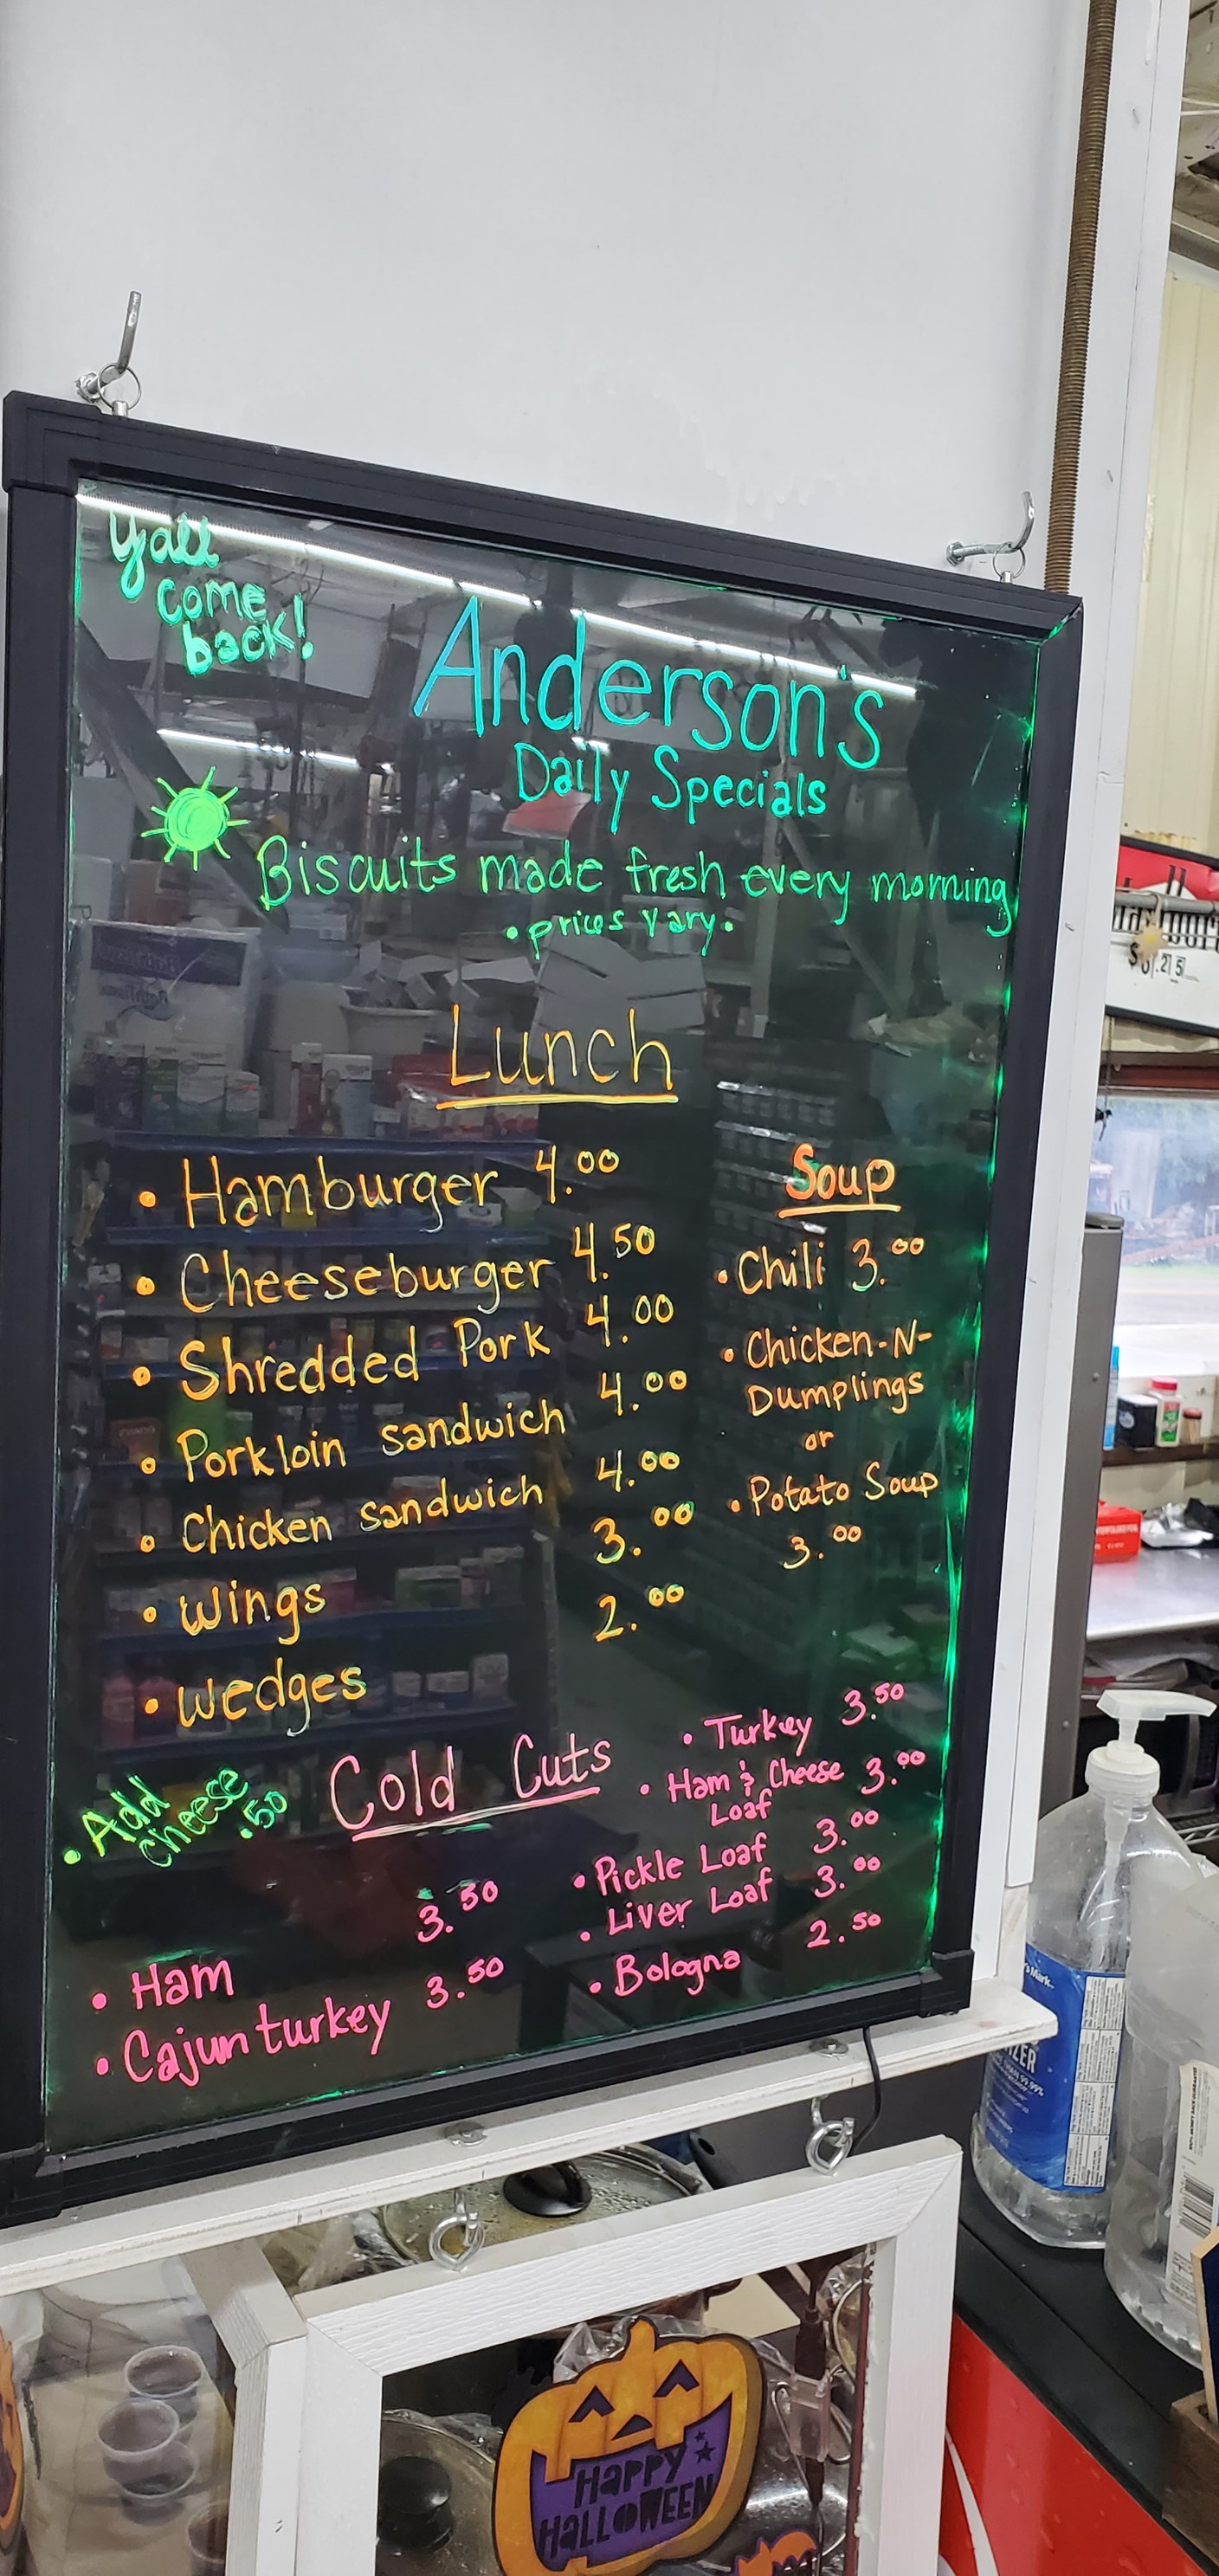 Y'all
come
back!
Anderson's
Daily Specials
Biscuits made fresh every morning
•prices vary•
Lunch
• Hamburger 4.00
• Cheeseburger 4.50
• Shredded Pork 4.00
• Porkloin sandwich 4.00
• Chicken sandwich 4.00
• Wings 3.00
• wedges 2.00
Soup
• Chili 3.00
• Chicken-N-
Dumplings
or
• Potato Soup
3.00
• Add
cheese
.50
Cold Cuts
• Ham 3.50
• Cajun turkey 3.50
• Turkey 3.50
• Ham & Cheese 3.00
Loaf
• Pickle Loaf 3.00
• Liver Loaf 3.00
• Bologna 2.50
HAPPY
HALLOWEEN